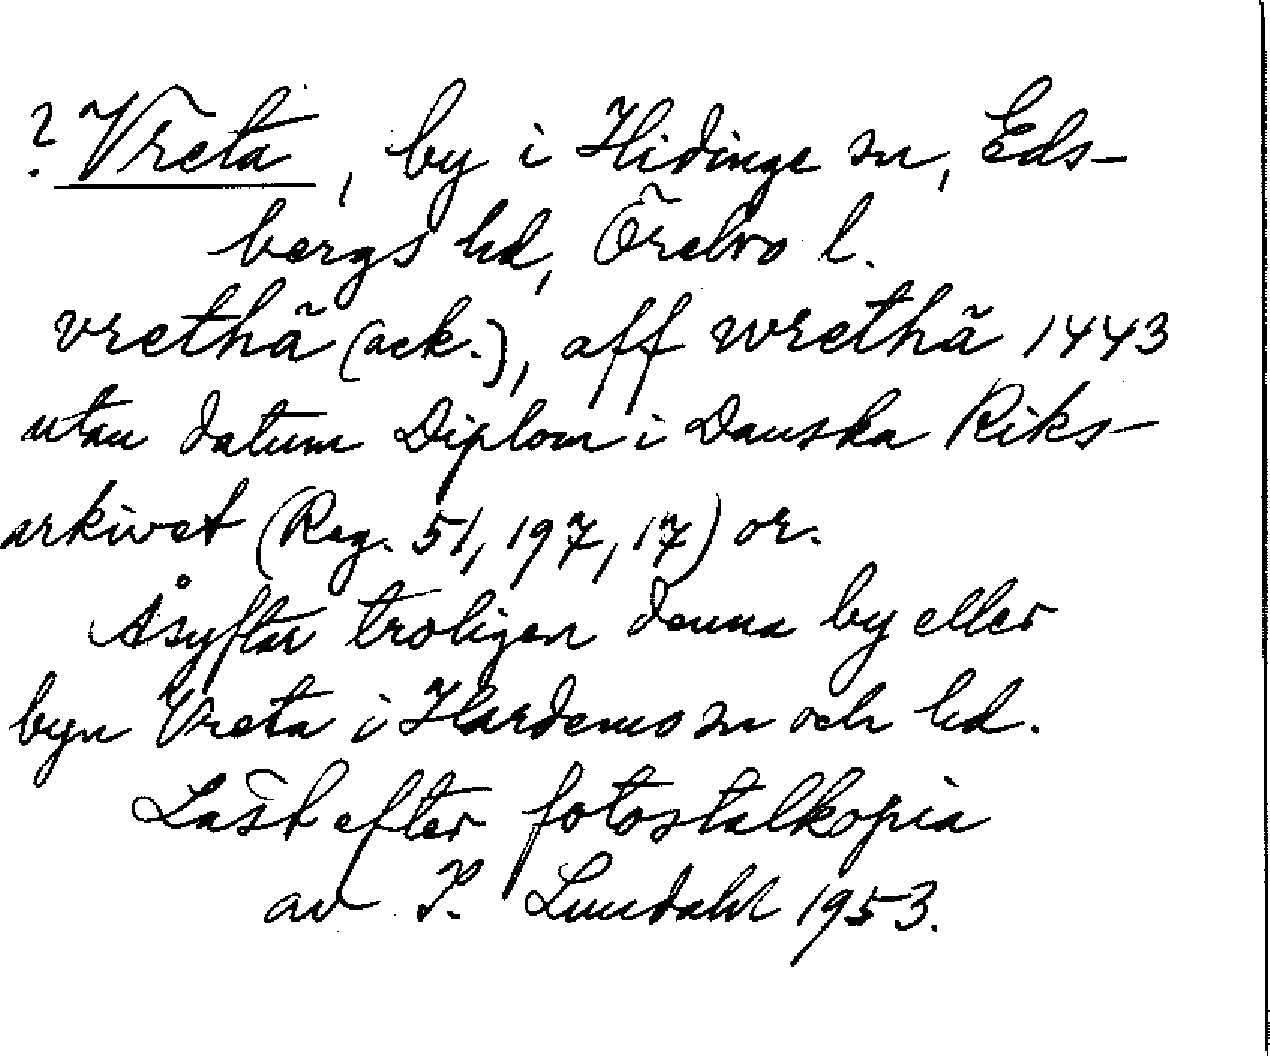 ? Vreta, by i Hidinge sn, Eds-
bergs hd, Örebro l.
vrethā (ack.), aff wrethā 1443
utan datum Diplom i Danska Riks-
arkivet (Reg. 51, 197, 17) or.
Åsyftar troligen denna by eller
byn Vreta i Hardemo sn och hd.
Läst efter fotostatkopia
av I. Lundahl 1953.